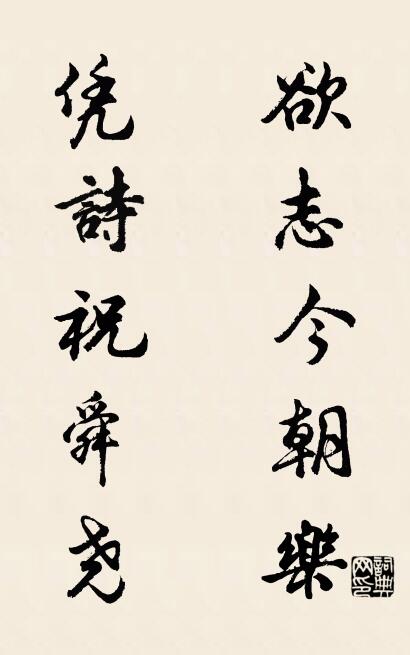 欲志今朝樂
凭詩祝舜尧
詞典网印